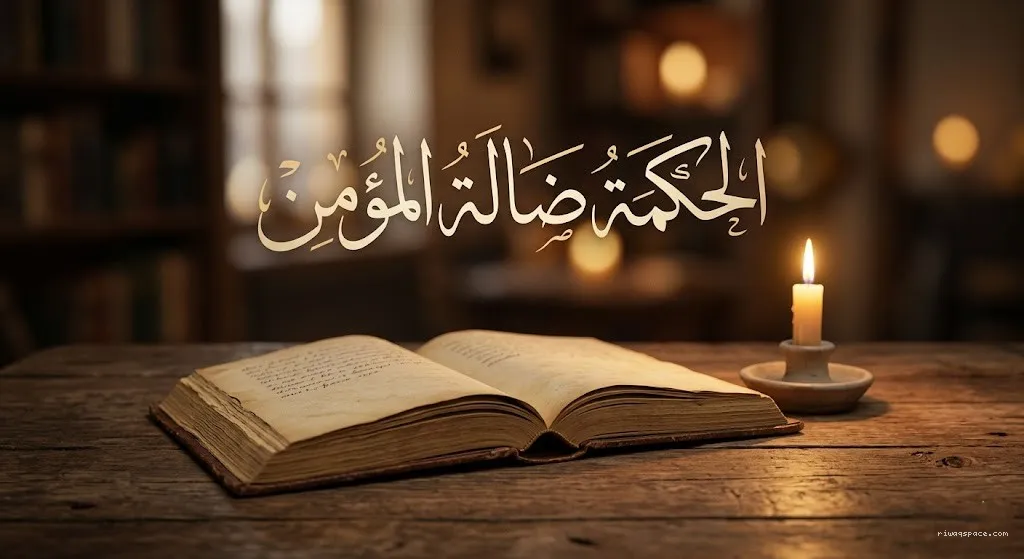 الحكمة ضَالَةُ المُؤمِنْ
riwaqspace.com